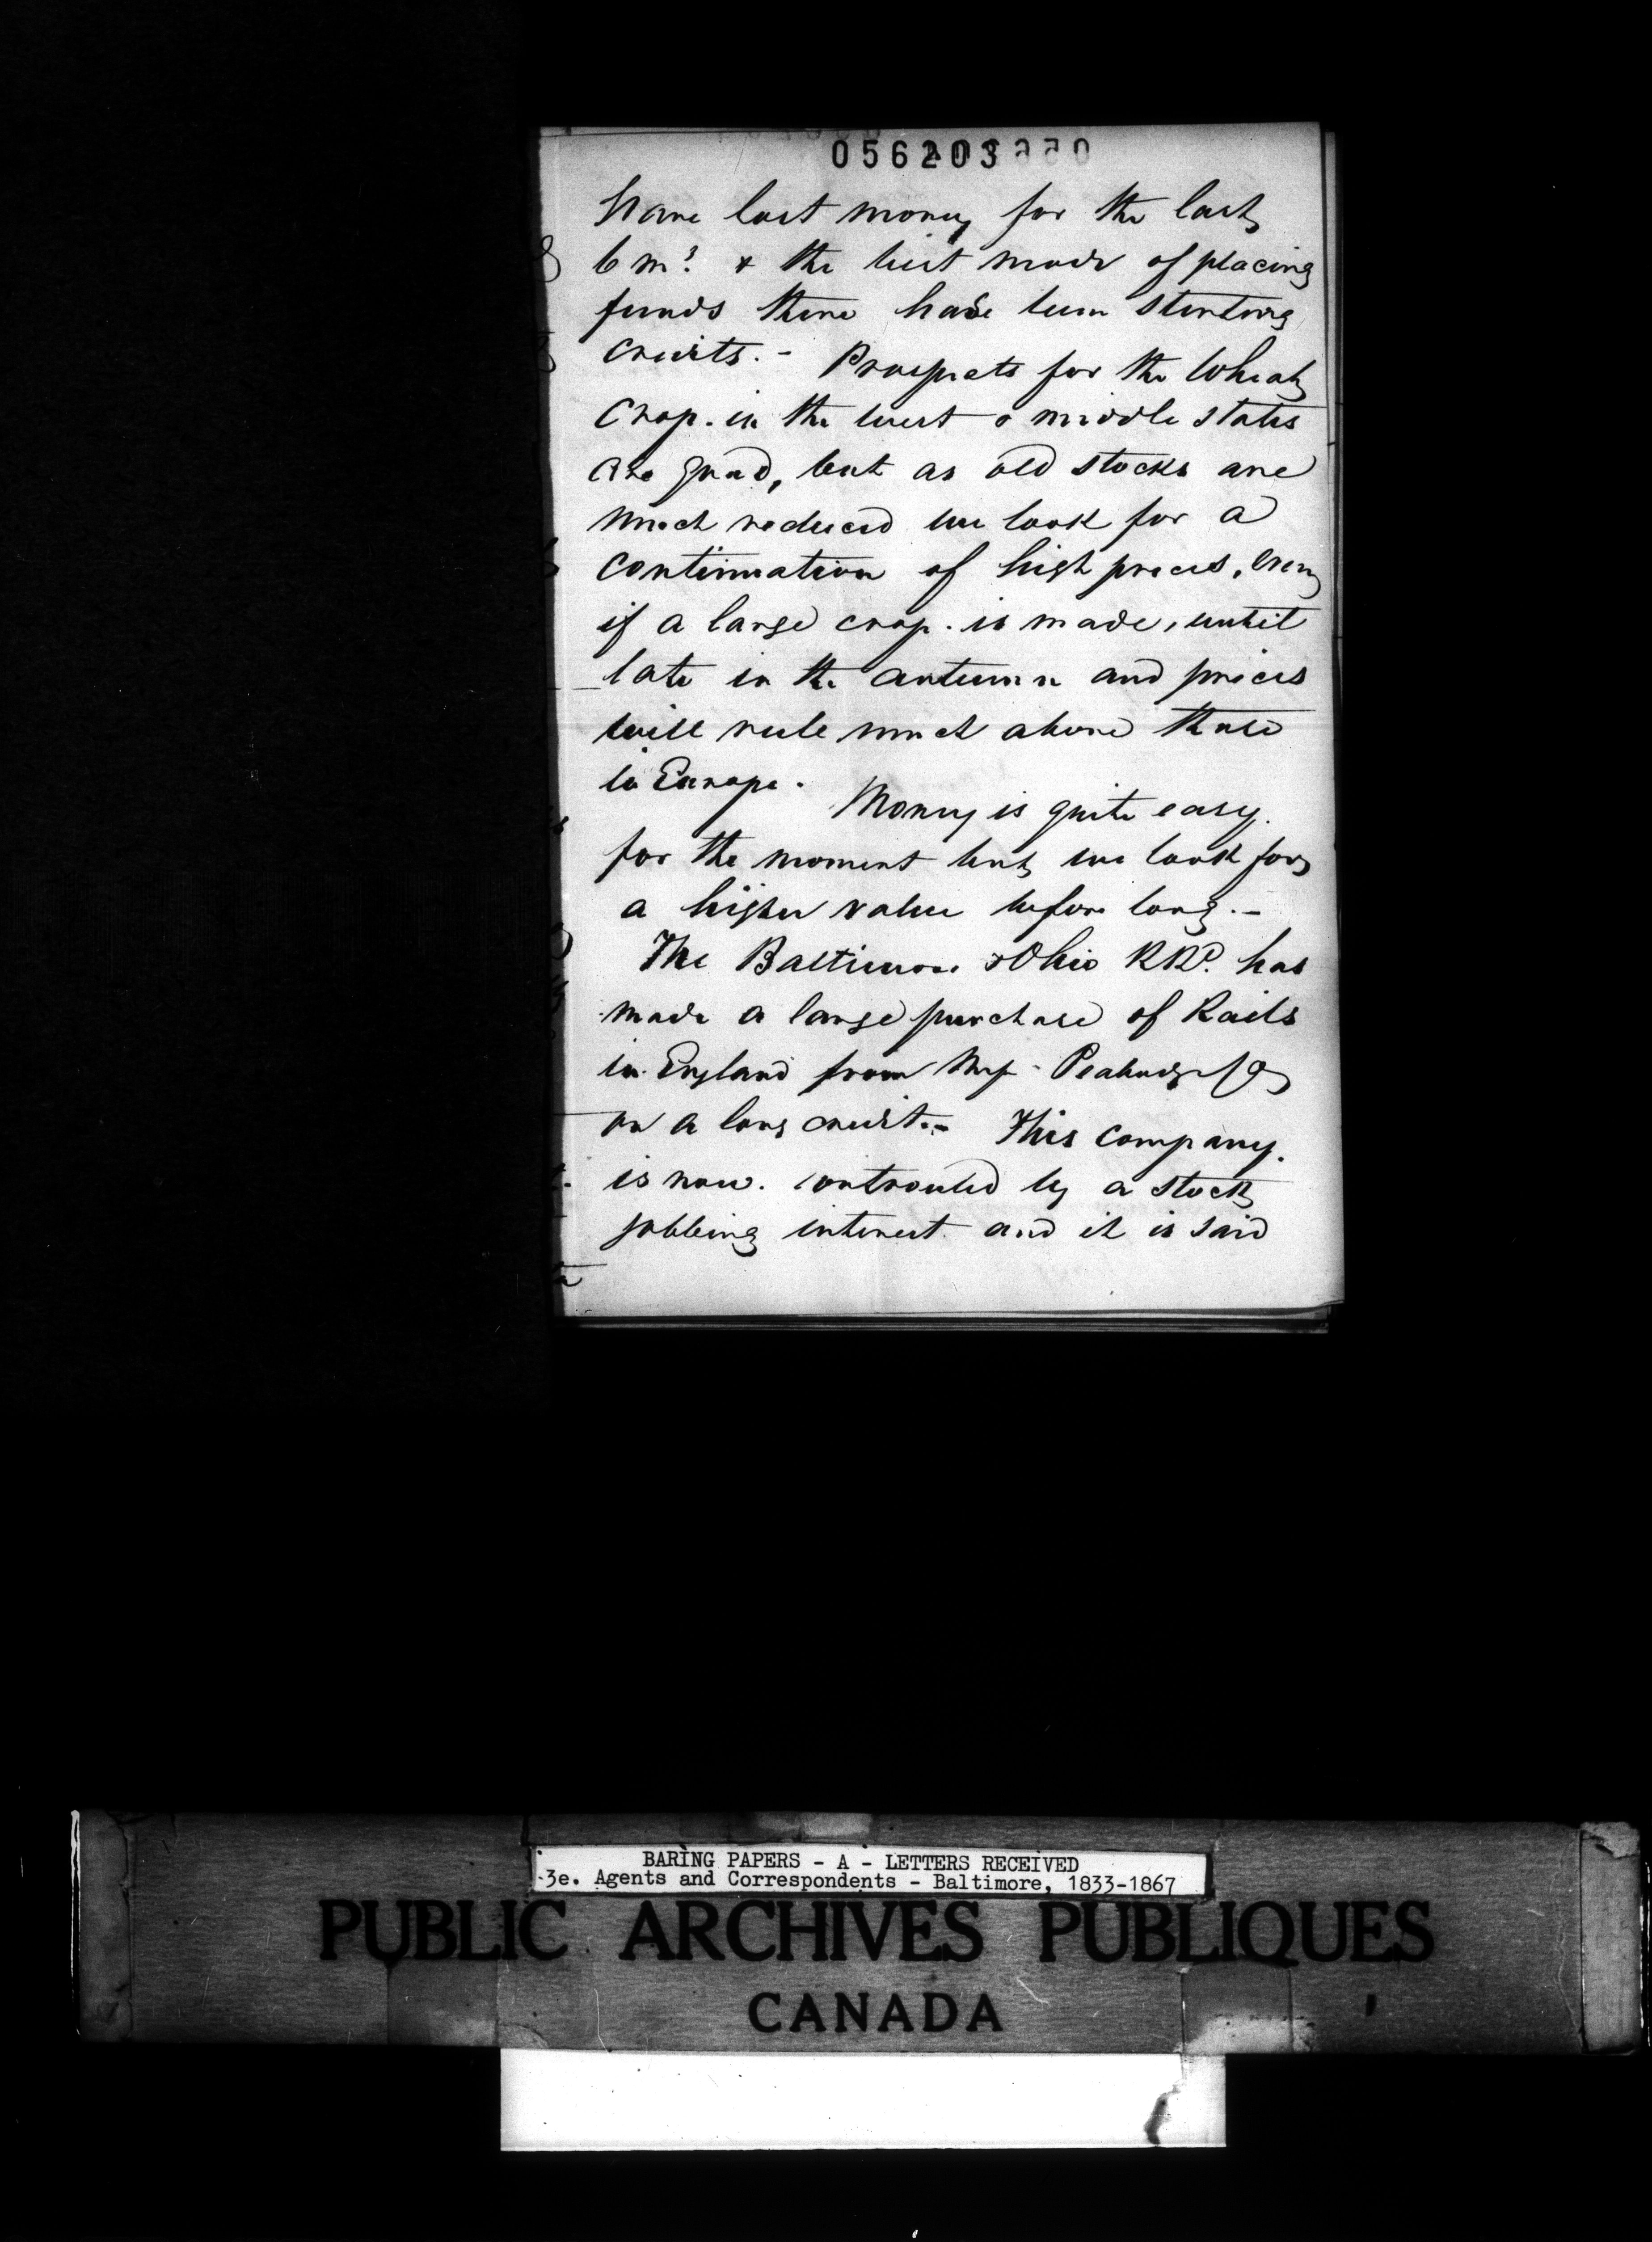 056203
have lost money for the last
6 ms. & the best mode of placing
funds there have been Sterling
credits. - Prospects for the Wheat
Crop. in the west & middle states
are good, but as old stocks are
much reduced we look for a
continuation of high prices, even
if a large crop. is made, until
late in the autumn and prices
will rule much above those
in Europe. Money is quite easy.
for the moment but we look for
a higher value before long. -
The Baltimore & Ohio RRd. has
made a large purchase of Rails
in England from Mess Peabody & Co
on a long credit. - This company.
is now. controuled by a stock
jobbing interest. and it is said
BARING PAPERS - A - LETTERS RECEIVED
3e. Agents and Correspondents - Baltimore, 1833-1867
PUBLIC ARCHIVES PUBLIQUES
CANADA